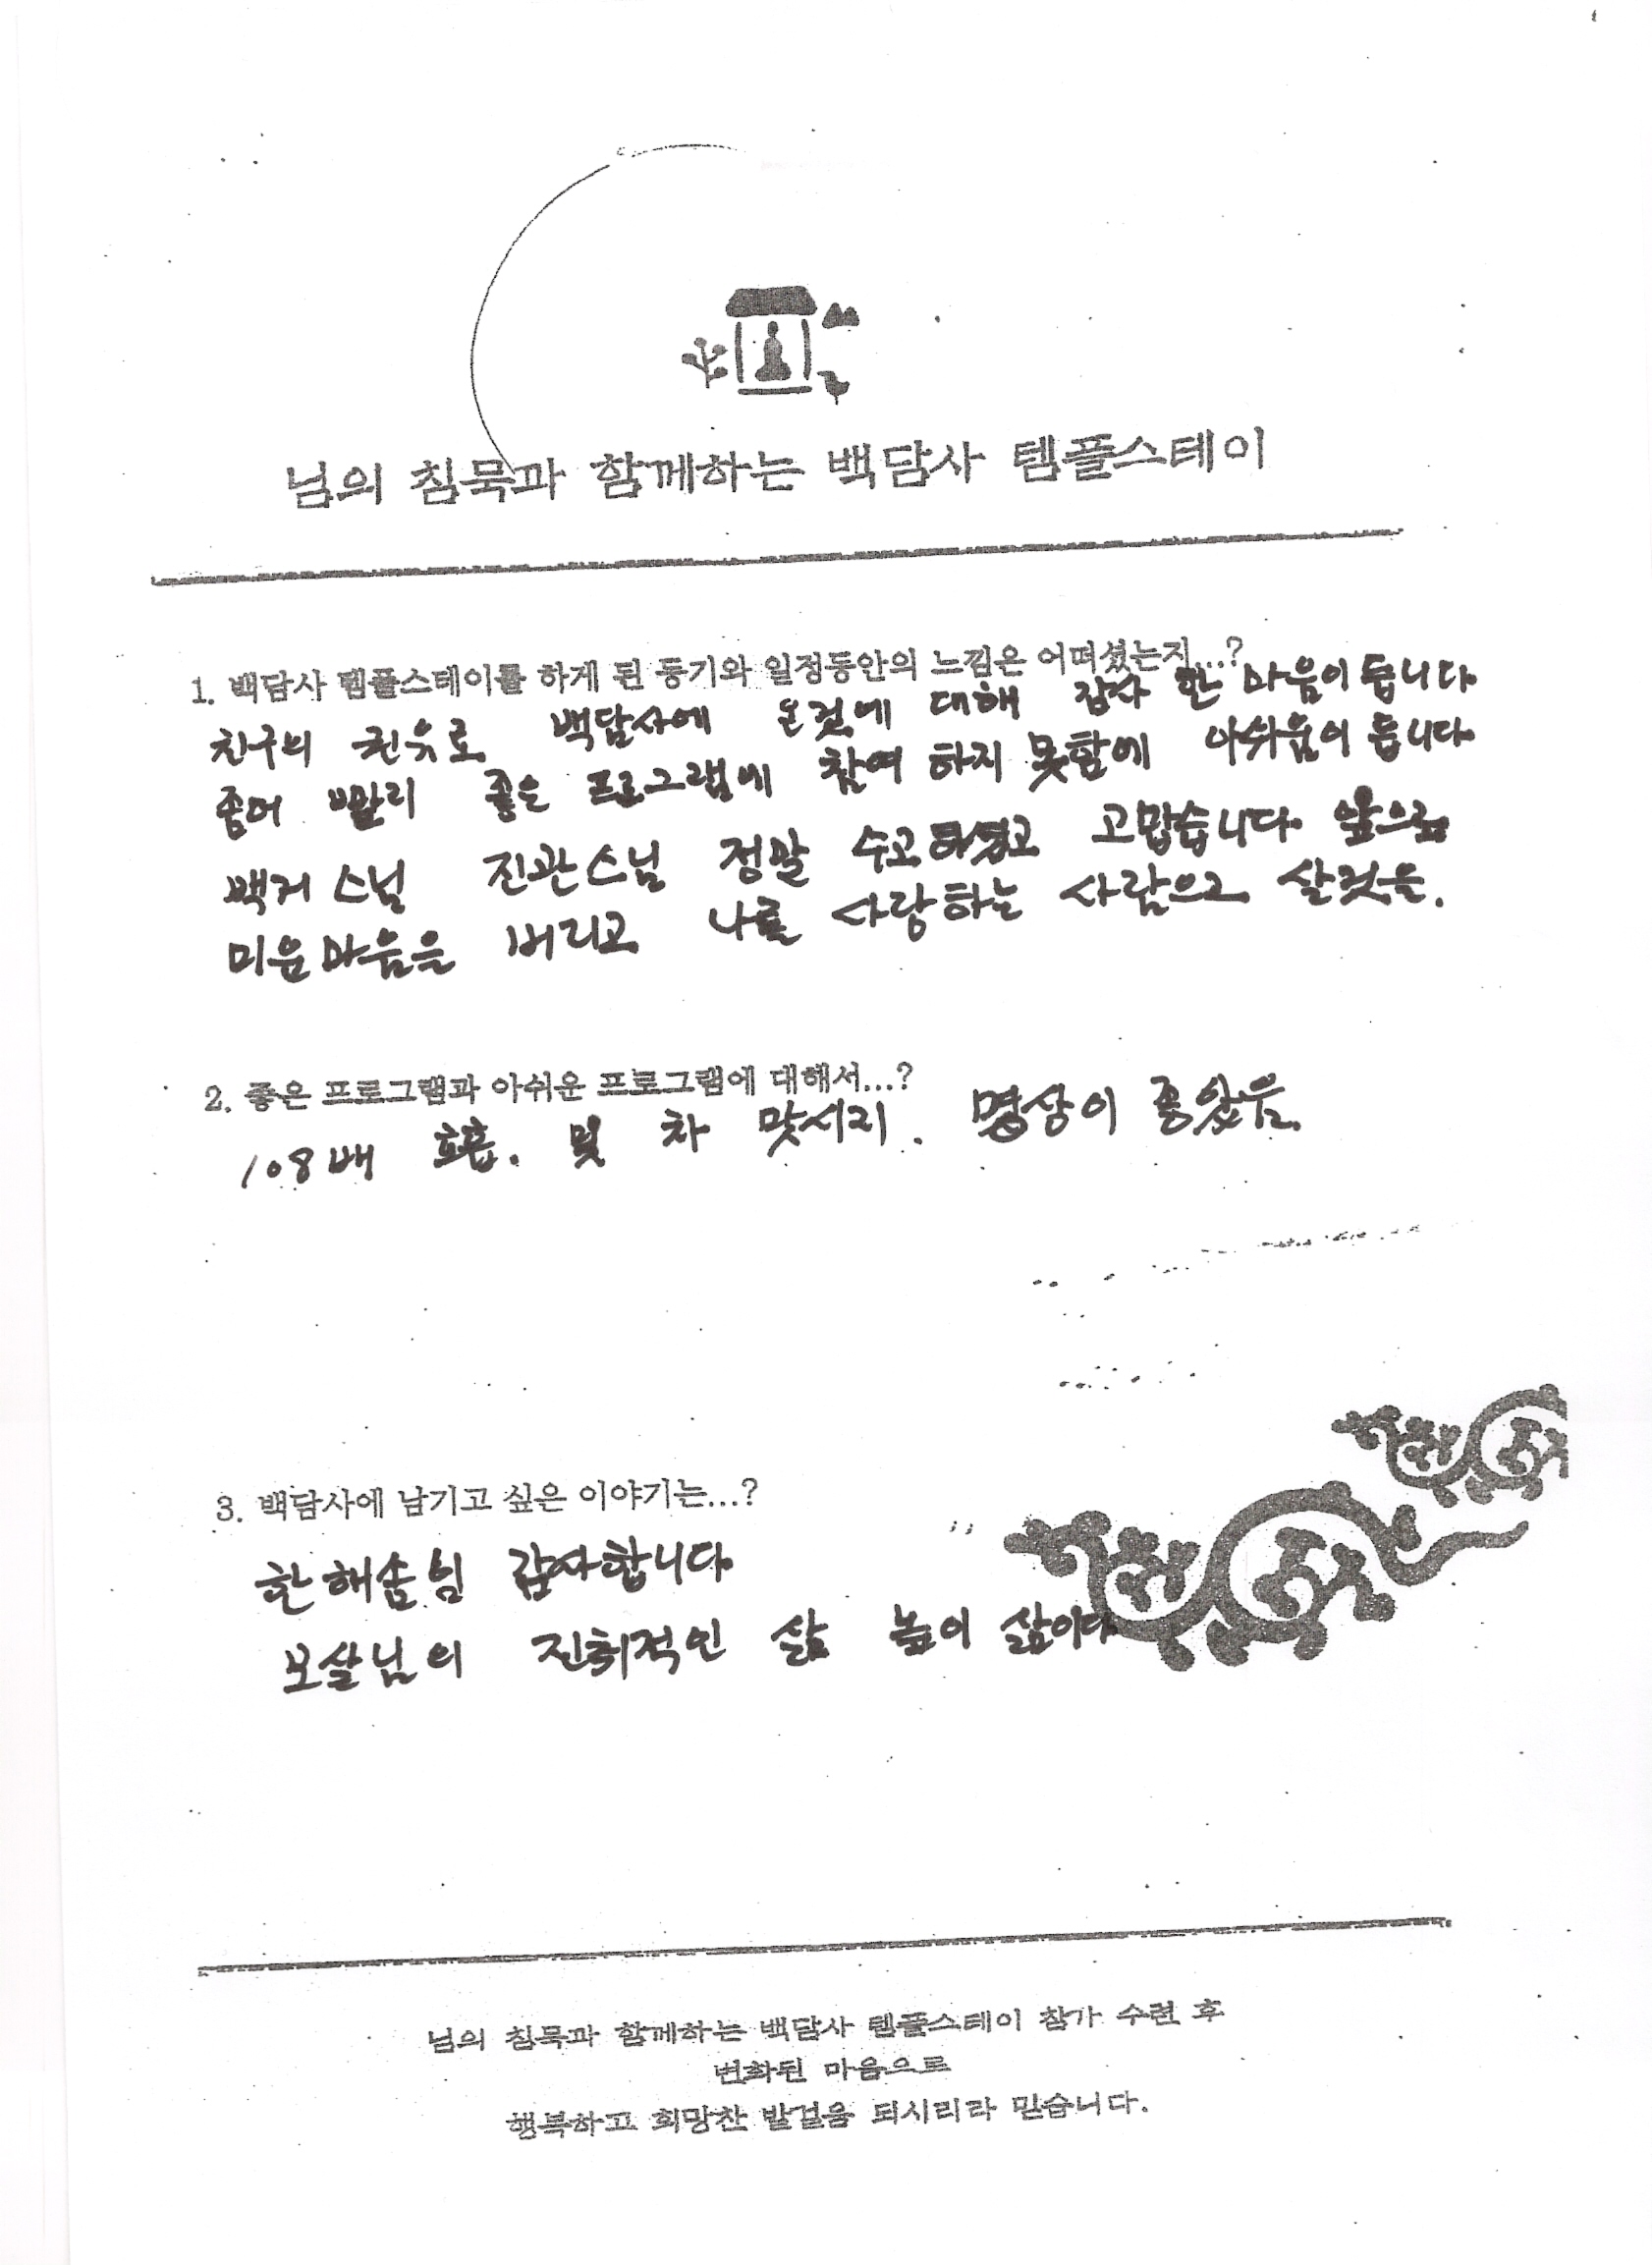 님의 침묵과 함께하는 백담사 템플스테이
1. 백담사 템플스테이를 하게 된 동기와 일정동안의 느낌은 어떠셨는지...?
친구의 권유로 백담사에 온것에 대해 감사 한 마음이 듭니다
좀더 빨리 좋은 프로그램에 참여 하지 못함에 아쉬움이 듭니다
백거스님 진관스님 정말 수고하셨고 고맙습니다 앞으로
미운마음을 버리고 나를 사랑하는 사람으로 살것을.
2. 좋은 프로그램과 아쉬운 프로그램에 대해서...?
108배 호흡. 및 차 맛시리. 명상이 좋았음.
3. 백담사에 남기고 싶은 이야기는...?
한해솜님 감사합니다
보살님의 진취적인 삶 높이 삶이다
님의 침묵과 함께하는 백담사 템플스테이 참가 수련 후
변화된 마음으로
행복하고 희망찬 발걸음 되시리라 믿습니다.